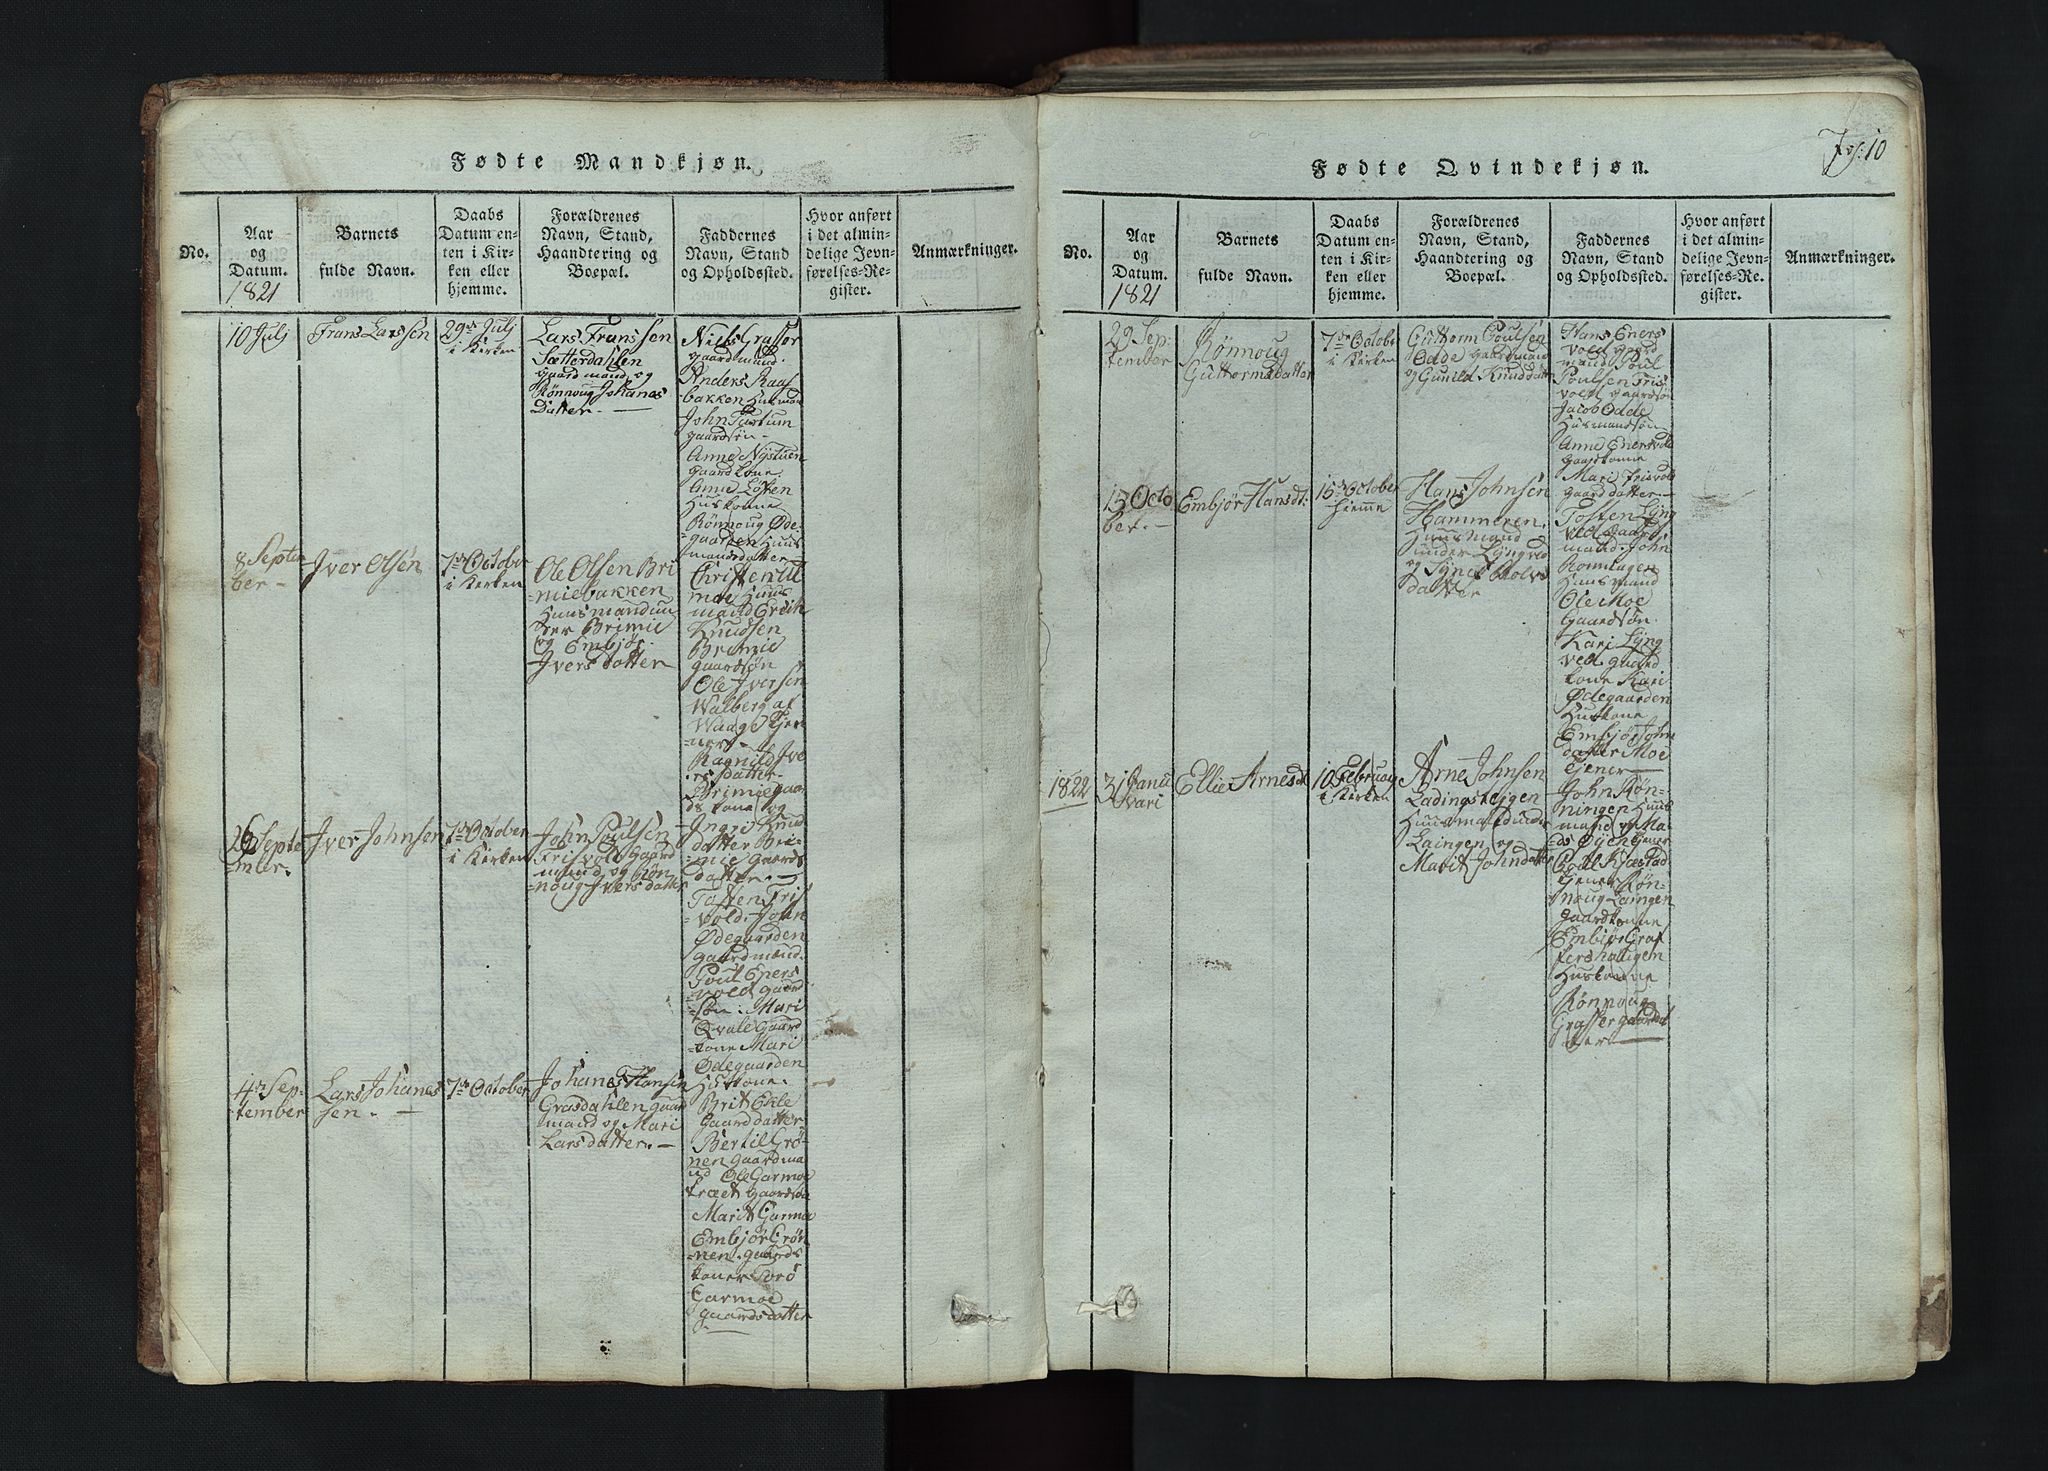 Fødte Mandkjøn.
No.
Aar
og
Datum.
1821
Barnets
fulde Navn.
Daabs
Datum en-
ten i Kir-
ken eller
hjemme.
Forældrenes
Navn, Stand,
Haandtering og
Boepæl.
Faddernes
Navn, Stand
og Opholdssted.
Hvor anført
i det almin-
delige Jevn-
førelses-Re-
gister.
Anmærkninger.
10 Julj
Frans Larssen
29de Julj
i Kirken
Lars Franssen
Sætterdahlen
Gaardmand og
Rønnoug Johanes
Datter. —
Niels Graffer
gaardmand.
Anders Raaf
bakken Husman
John Tastum
gaardsøn —
Anne Nystuen
gaardkone
Anne Løften
Huskone
Rønnoug Øde-
gaarden Huus
mandsdatter —
8 Septem
ber —
Iver Olsen
7de October
i Kirken
Ole Olsen Bri
-miebakken
Huusmand un
der Brimie
og Embjør
Ivers datter
Christen Ul
moe Huus
mand Erik
Knudsen
Brimie
gaardsøn
Ole Iversen
Walberg af
Waage Tjen
-ner —
Ragnild Ive
rs datter
Brimie gaar
ds kone og
Ingri Knud
datter Bri-
mie Gaards
datter. —
26 Septe
-mber.
Iver Johnsen
7de October
i Kirken
John Poulsen
Frisvold Gaard
mand og Røn
-noug Ivers datter
Tosten Fris
-vold. John
Ødegaarden
gaardmænd.
Poul Eners
-vold gaard
søn. Mari
Qvale Gaard
-kone Mari
Ødegaarden
Huskone.
Brit Ekle
Gaarddatter
4de Sep-
tember
Lars Johanes
sen. —
7de October
Johanes Hansen
Grasdahlen gaar
mand og Mari
Larsdatter. —
Bertil Grø-
nen gaardma
nd Ole Garmoe
træet gaardsøn
Marit Garmoe
Embjør Grøn
-nen. gaards
koner Torø
Garmoe
gaardsdatter
7 10
Fødte Qvindekjøn.
No.
Aar
og
Datum.
1821
Barnets
fulde Navn.
Daabs
Datum en-
ten i Kir-
ken eller
hjemme.
Forældrenes
Navn, Stand,
Haandtering og
Boepæl.
Faddernes
Navn, Stand
og Opholdssted.
Hvor anført
i det almin-
delige Jevn-
førelses-Re-
gister.
Anmærkninger.
29 Sep-
tember
Rønnoug
Guttormsdatter
7de Octobe
i Kirken
Guttorm Poulsen
Odde gaardmand
og Gunild Knuddatter
Hans Eners
vold gaard
mand Poul
Poulsen Fris
vold gaardsøn
Jacob Odde
Husmandsøn
Anne Enersvold
gaardkonne
Mari Frisvold
gaarddatter —
13 Octo
ber. —
Embjør Hansdt.
15de October
Hiemme
Hans Johnsen
Hammeren.
Huusmand
under Lyngved
og Synev Rolvs
datter
Tosten Lyng
ved Gaard
mand. John
Rønningen
Huusmand
Ole Moe
Gaardsøn.
Kari Lyng
ved gaard
kone Kari
Ødegaarden
Huskone
Embjør John
datter Moe
tjener
1822
31 Janu
vari
Ellie Arnesdt
10 Februay
i Kirken
Arne Johnsen
Ladingsteigen
Huusmand under
Laingen og
Marit Johndatter
John Røn-
ningen Huus
mand og Ma-
ds Øyen Tjener
Poul Kjæstad
Tjener Røn-
noug Laingen
gaardkonne
Embjør Graf
fershaugen
Huskonne
Rønnoug
Graffer gaardd
ter